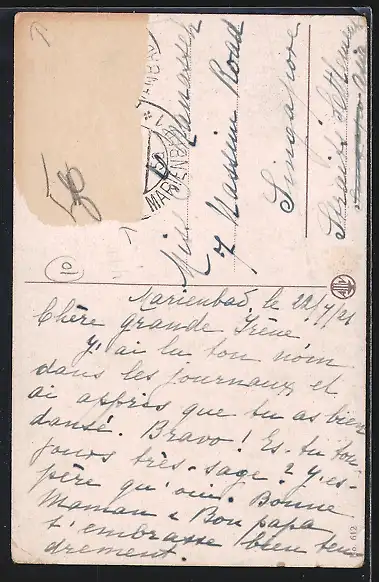 MARIENBAD
MARIENBAD
56
10
Miss I. Ramasse
7 Nassim Road
Singapore
Straits Settlements
Marienbad, le 22/7/26
Chère grande Irène
Y'ai lu ton nom
dans les journaux et
ai appris que tu as bien
dansé. Bravo! Es-tu tou
jours très-sage? Y'es-
père qu'oui. Bonne
Maman & Bon papa
t'embrasse bien ten
drement.
No. 612